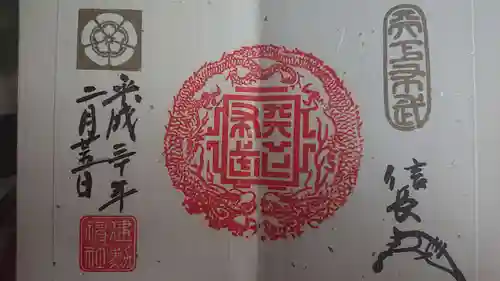 天下布武
信長
天下布武
平成三十年
二月廿五日
建勲
神社